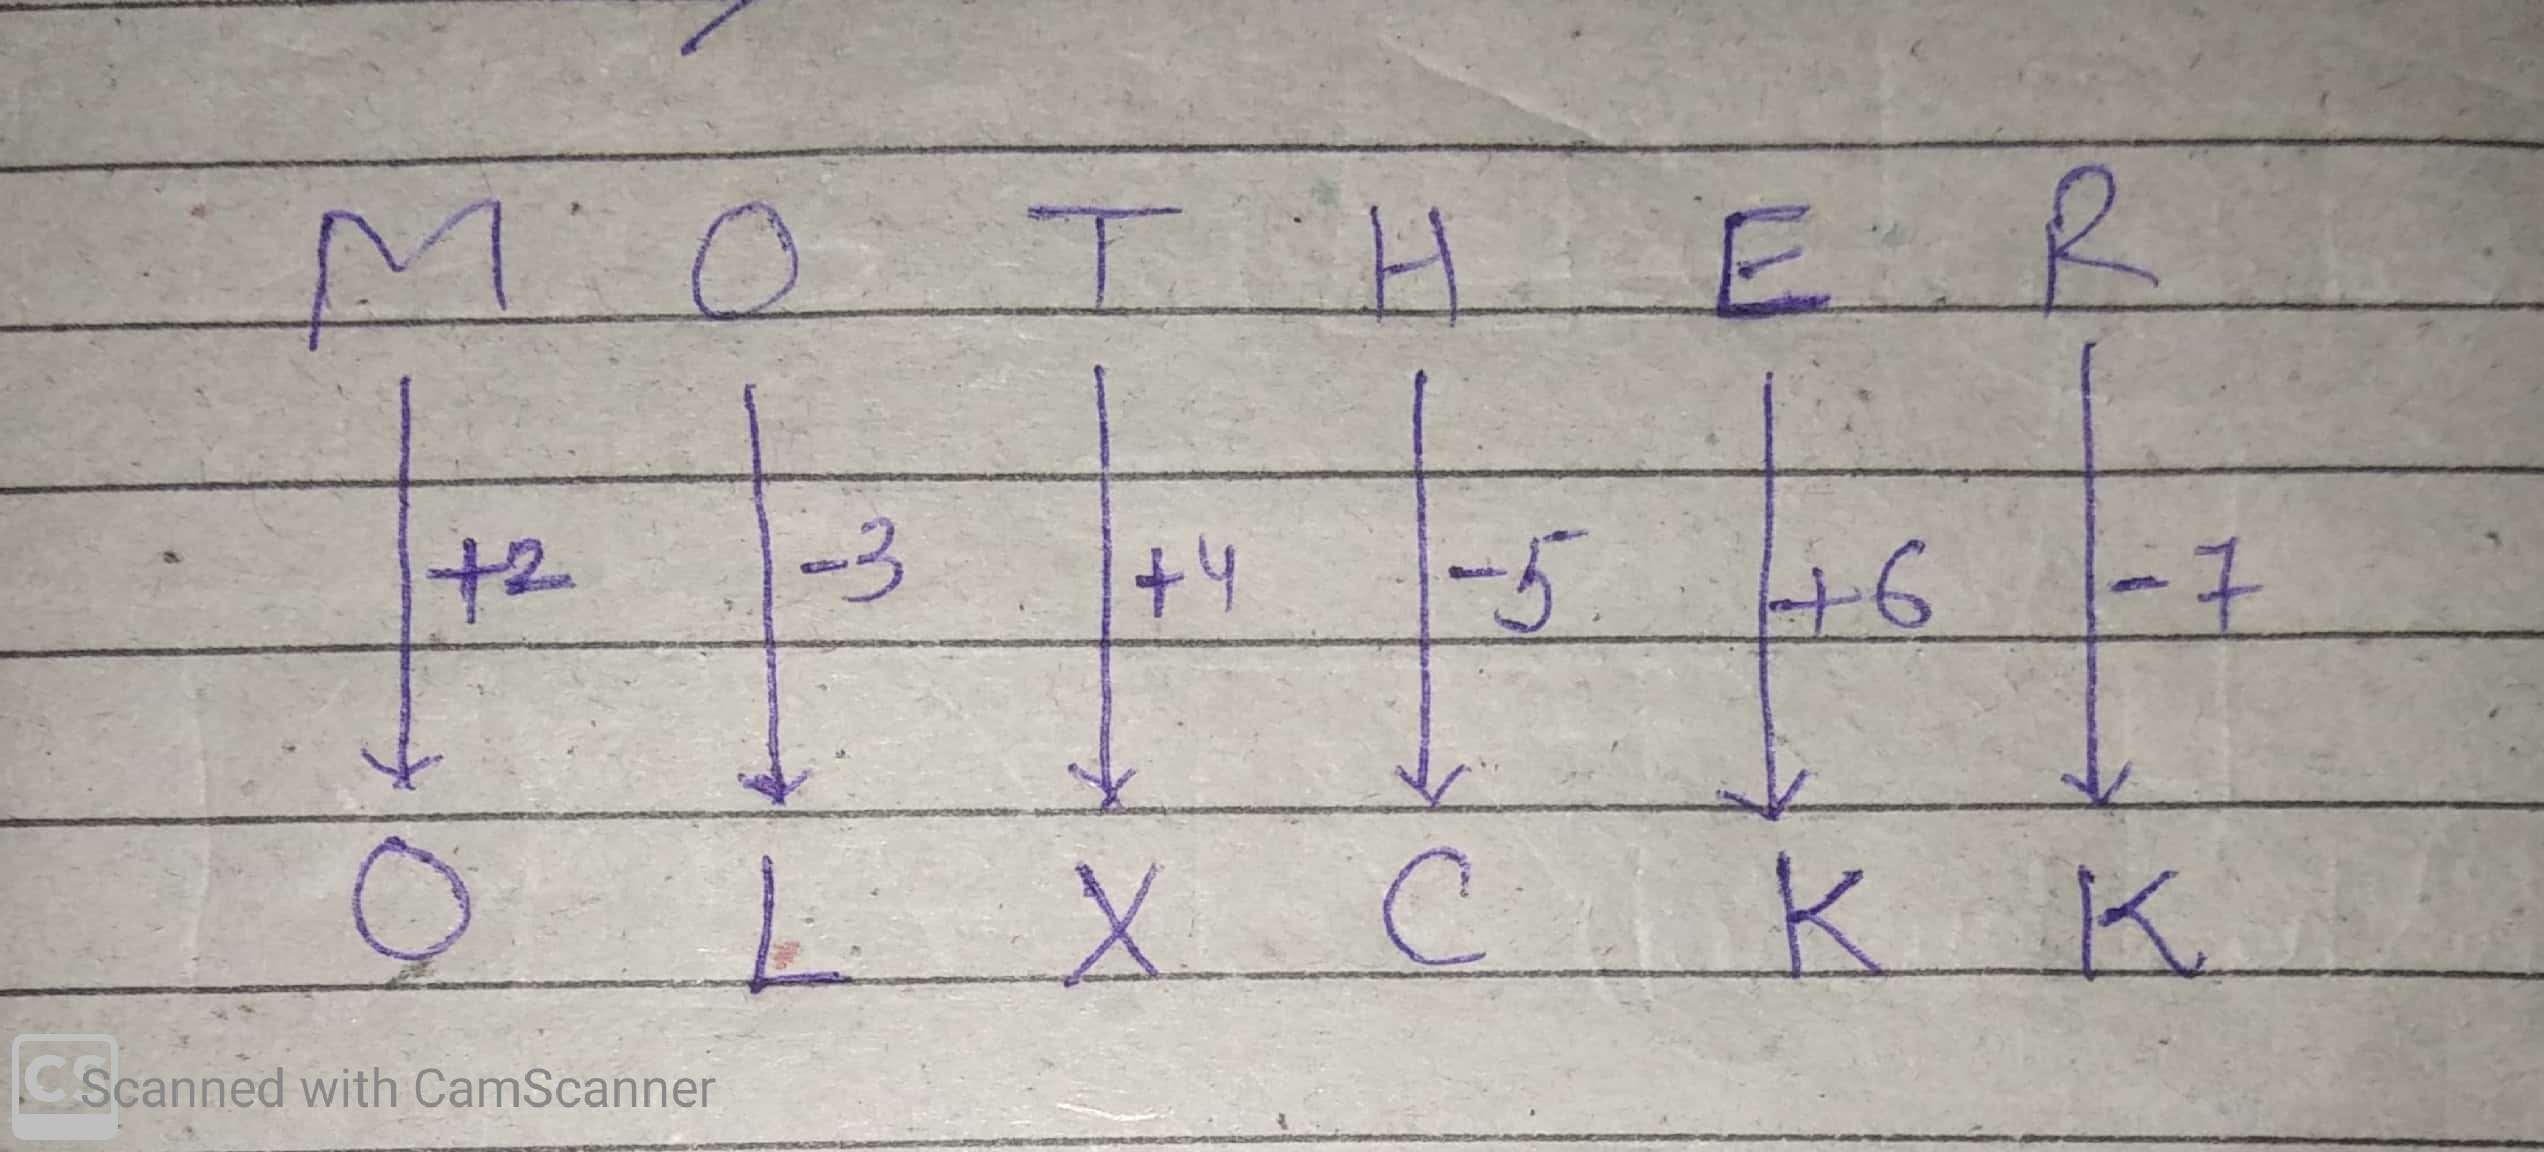 M O T H E R
+2 -3 +4 -5 +6 -7
O L X C K K
CS Scanned with CamScanner